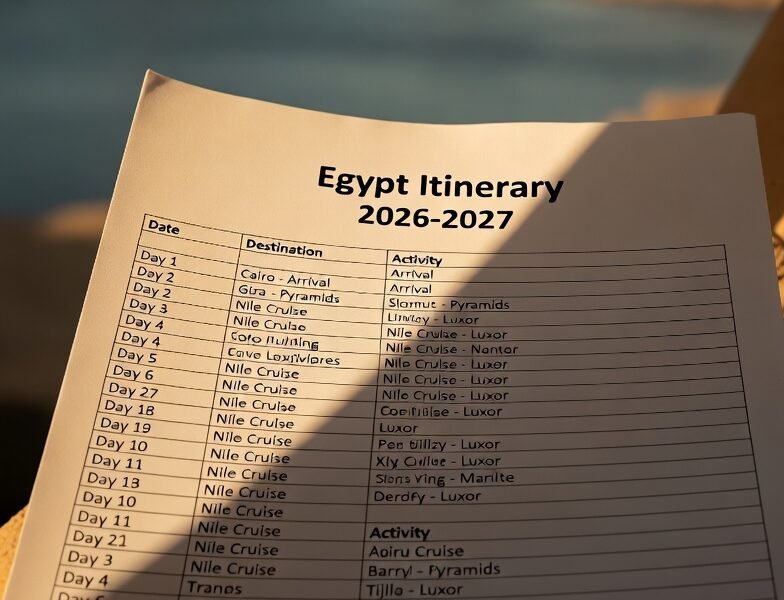 Egypt Itinerary
2026-2027
Date Destination Activity
Arrival
Day 1 Cairo - Arrival Arrival
Day 2 - Pyramids - Pyramids
Day 2 Nile Cruise - Luxor
Day 3 Nile Cruise Nile Cruise - Luxor
Day 4 Nile Cruise - Nantor
Day 4 Nile Cruise - Luxor
Day 5 Nile Cruise Nile Cruise - Luxor
Day 6 Nile Cruise Nile Cruise - Luxor
Day 27 Nile Cruise - Luxor
Day 18 Nile Cruise Luxor
Day 19 Nile Cruise Pen - Luxor
Day 10 Nile Cruise Xly - Luxor
Day 11 Nile Cruise - Marilte
Day 13 Nile Cruise Derdfy - Luxor
Day 10 Nile Cruise
Day 11 Nile Cruise Activity
Day 21 Nile Cruise Aoiru Cruise
Day 3 Nile Cruise Barryl - Pyramids
Day 4 Tranos - Luxor